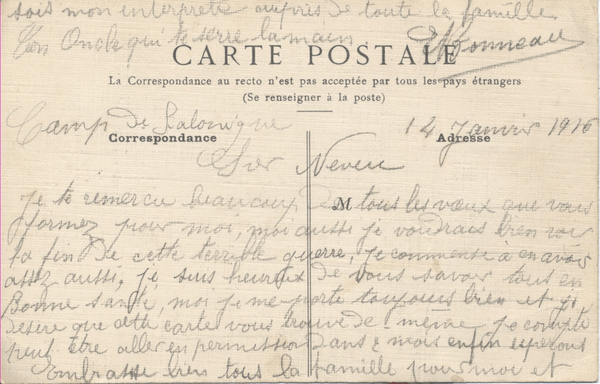 sois mon interprète auprès de toute la famille
Ton Oncle qui te serre la main
CARTE POSTALE
La Correspondance au recto n'est pas acceptée par tous les pays étrangers
(Se renseigner à la poste)
Camp de Salonique 14 Janvier 1916
Correspondance Adresse
Cher Neveu
Je te remercie beaucoup de tous les vœux que vous
M
formez pour moi, moi aussi je voudrais bien voir
la fin de cette terrible guerre, je commence à en avoir
assez aussi, je suis heureux de vous savoir tous en
Bonne santé, moi je me porte toujours bien et je
désire que cette carte vous trouve de même, je compte
peut être aller en permission dans 2 mois enfin espérons
Embrasse bien tous la famille pour moi et